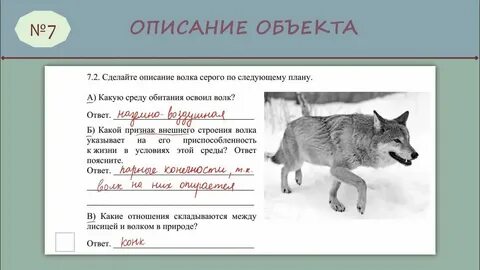 №7
ОПИСАНИЕ ОБЪЕКТА
7.2. Сделайте описание волка серого по следующему плану.
А) Какую среду обитания освоил волк?
Ответ. наземно-воздушная
Б) Какой признак внешнего строения волка
указывает на его приспособленность
к жизни в условиях этой среды? Ответ
поясните.
Ответ. парные конечности, т.к.
волк на них опирается
В) Какие отношения складываются между
лисицей и волком в природе?
Ответ. конк